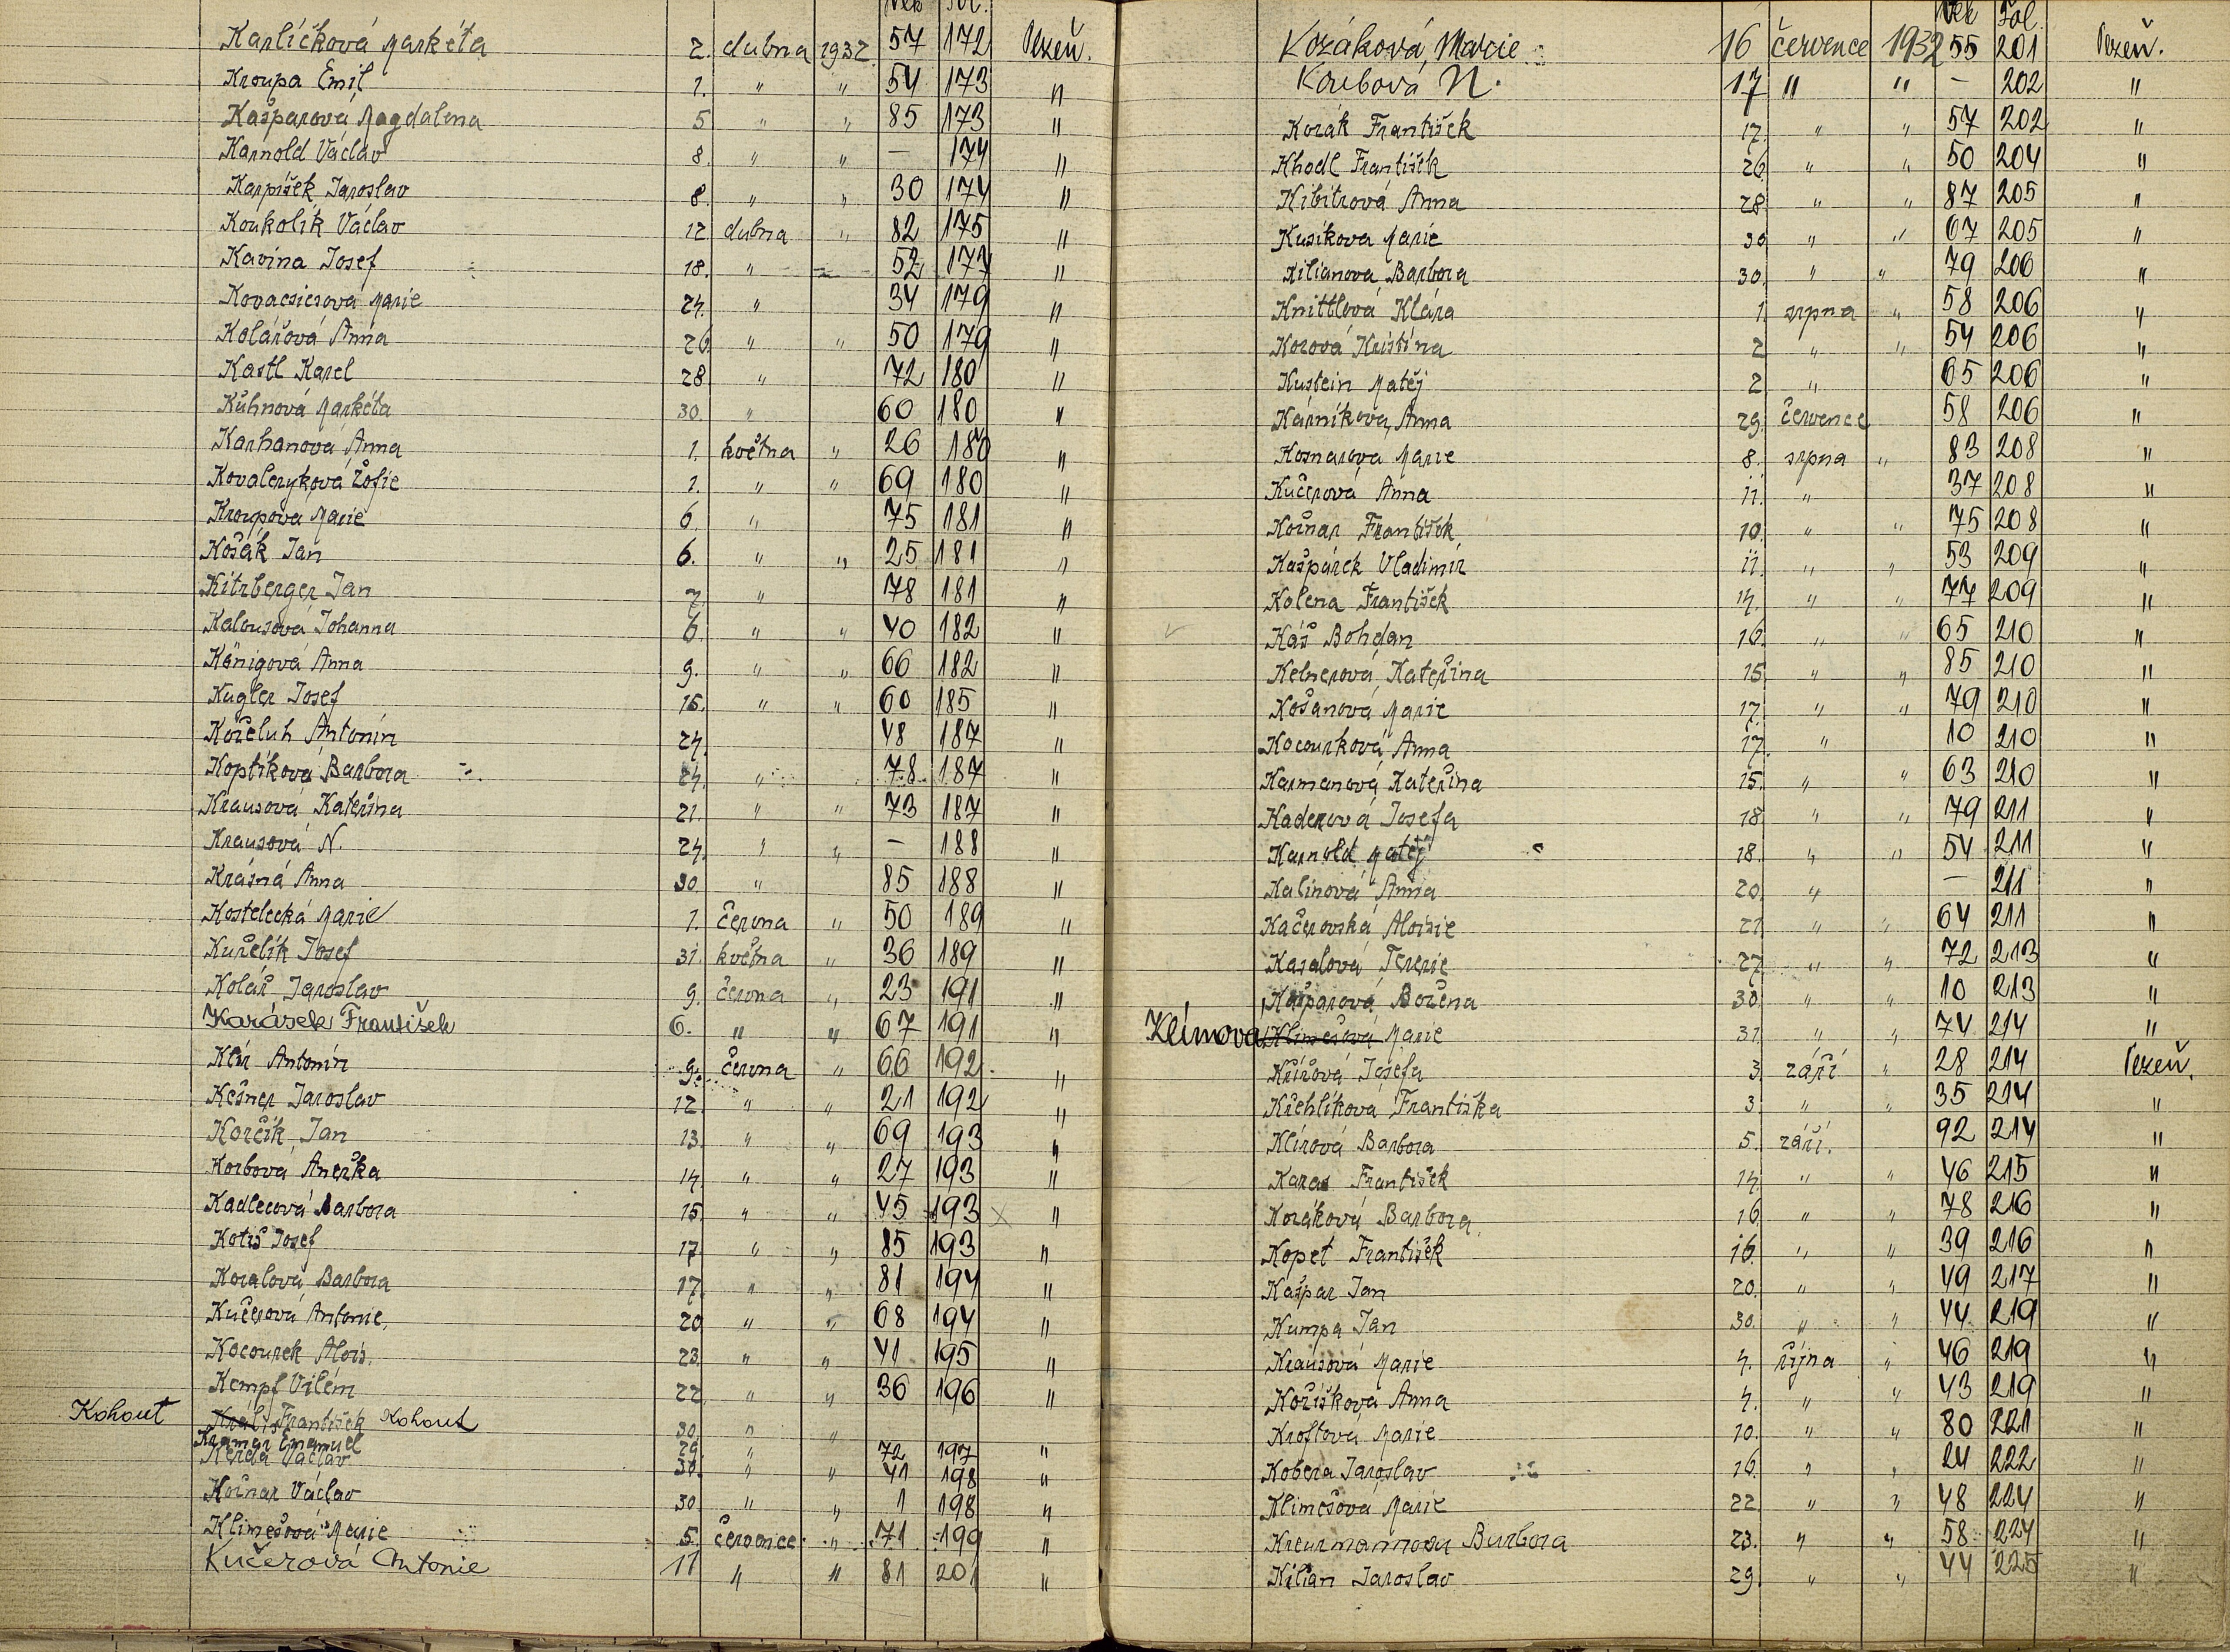 Věk Fol.
Karlíčková Markéta 2. dubna 1932 57 172 Plzeň.
Kroupa Emil 1. " " 54 173 "
Kašparová Magdalena 5 " " 85 173 "
Karnold Václav 8. " " — 174 "
Karpíšek Jaroslav 8. " " 30 174 "
Koukolík Václav 12 dubna " 82 175 "
Kavina Josef 18. " " 52 177 "
Kovacsicsová Marie 24. " 34 179 "
Kolářová Anna 26 " " 50 179 "
Kastl Karel 28 " 72 180 "
Kühnová Markéta 30. " 60 180 "
Karhanová Anna 1. května " 26 180 "
Kovalenyková Žofie 1. " " 69 180 "
Kroupova Marie 6. " 75 181 "
Košák Jan 6. " " 25 181 "
Kitzberger Jan 7. " 78 181 "
Kalousová Johanna 6. " " 40 182 "
Königová Anna 9. " " 66 182 "
Kugler Josef 15. " " 60 185 "
Kořeluh Antonín 24. 48 187 "
Koptíková Barbora 24. " 78 187 "
Krausová Kateřina 21. " " 73 187 "
Krausová N. 24. " " — 188 "
Krásná Anna 30. " 85 188 "
Kostelecká Marie 1. června " 50 189 "
Kuželík Josef 31. května " 36 189 "
Kolář Jaroslav 9. června " 23 191 "
Karásek František 6. " " 67 191 "
Klír Antonín 9. června " 66 192 "
Kešner Jaroslav 12. " " 21 192 "
Korčík Jan 13. " " 69 193 "
Korbová Anežka 14. " " 27 193 "
Kadlecová Barbora 15. " " 45 193 x "
Kotiš Josef 17. " " 85 193 "
Kozalová Barbora 17. " " 81 194 "
Kučerová Antonie. 20. " " 68 194 "
Kocourek Alois. 23. " " 41 195 "
Kempf Vilém 22. " " 36 196 "
Kohout Král František Kohout 30. " "
Kramar Emanuel 29. " 72 197 "
Kerda Václav 30. " " 41 198 "
Kožnar Václav 30. " " 1 198 "
Klimešová Marie 5. července " 71 199 "
Kučerová Antonie 11 " " 81 201 "
Věk Fol.
Kozáková, Marie 16 července 1932 55 201 Plzeň.
Koubová N. 17 " " — 202 "
Kozák František 17. " " 57 202 "
Khodl František 26. " " 50 204 "
Kibitzová Anna 28. " " 87 205 "
Kusíkova Marie 30. " " 67 205 "
Kilianova Barbora 30. " " 79 206 "
Knittlová Klára 1. srpna " 58 206 "
Kozová Kristína 2 " " 54 206 "
Kustein Matěj 2 " 65 206 "
Kárníková Anna 29. července 58 206 "
Kosnarova Marie 8. srpna " 83 208 "
Kučerová Anna 11. " 37 208 "
Kožnar František 10. " " 75 208 "
Kašpárek Vladimír 11. " " 53 209 "
Kolena František 14. " " 77 209 "
Káš Bohdan 16. " " 65 210 "
Kelnerová Kateřina 15. " " 85 210 "
Košanová Marie 17. " " 79 210 "
Kocourková Anna 17. " 10 210 "
Karmanová Kateřina 15. " " 63 210 "
Kaderová Josefa 18 " " 79 211 "
Karnold Matěj 18. " " 54 211 "
Kalinová Anna 20. " — 211 "
Kačerovská Aloisie 21 " " 64 211 "
Kasalová Terezie 27. " " 72 213 "
Kašparová Božena 30. " " 10 213 "
Klímova Klimešová Marie 31. " " 74 214 "
Křížová Josefa 3. září " 28 214 Plzeň.
Křehlíková Františka 3. " " 35 214 "
Klírová Barbora 5. září. 92 214 "
Karas František 14. " " 46 215 "
Kozáková Barbora 16. " " 78 216 "
Kopet František 16. " " 39 216 "
Kašpar Jan 20. " " 49 217 "
Kumpa Jan 30. " " 44 219 "
Krausová Marie 4. října " 46 219 "
Kožíšková Anna 4. " " 43 219 "
Kroftová Marie 10. " " 80 221 "
Kobera Jaroslav 16. " " 24 222 "
Klimešová Marie 22. " " 48 224 "
Kreuzmannova Barbora 23. " " 58 224 "
Kilian Jaroslav 29. " " 44 225 "